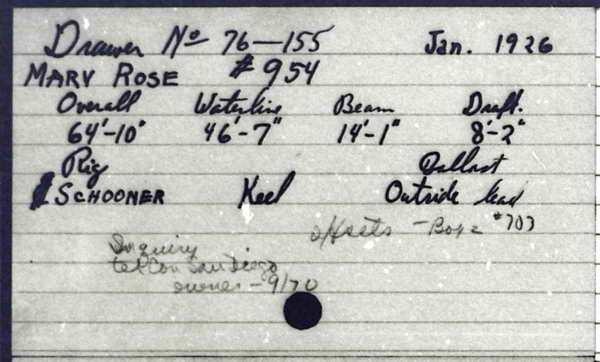 Drawer No 76-155 Jan. 1926
MARY ROSE #954
Overall Waterline Beam Draft.
64'-10" 46'-7" 14'-1" 8'-2"
Rig Ballast
SCHOONER Keel Outside lead
offsets - Box #703
Inquiry
telcon San Diego
owner - 9/70